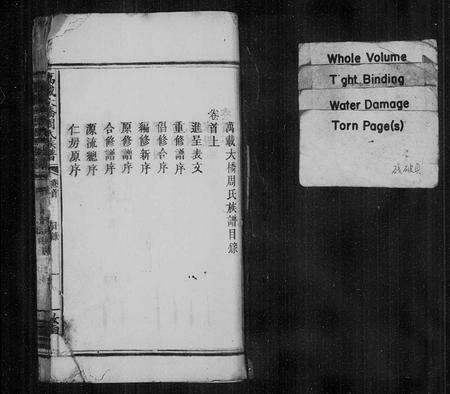 萬載大橋周氏族譜目錄
卷首上
進呈表文
重修譜序
倡修合序
編修新序
原修譜序
合修譜序
源流總序
仁房原序
Whole Volume
Tight Binding
Water Damage
Torn Page(s)